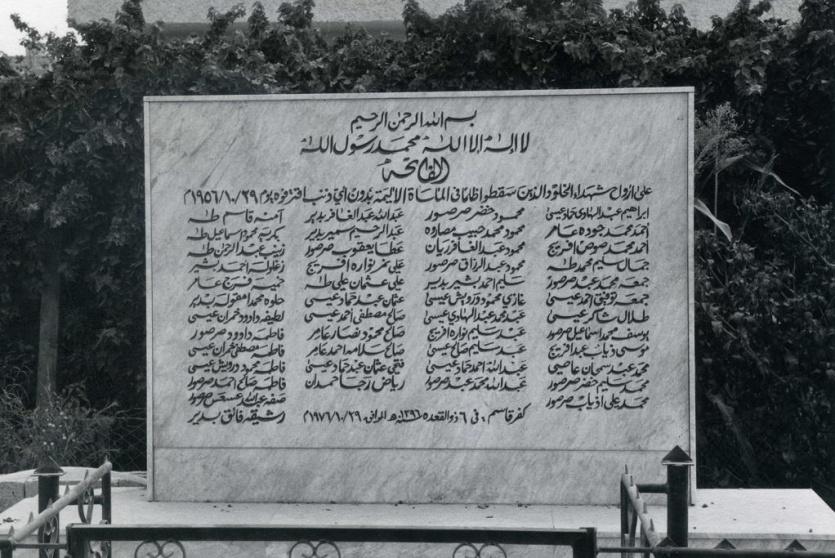 بسم الله الرحمن الرحيم
لا إله إلا الله محمد رسول الله
الفاتحة
على ارواح شهداء الخلود الذين سقطوا ظلمًا في المأساة الأليمة بدون أي ذنب اقترفوه يوم ١٩٥٦/١٠/٢٩م
ابراهيم عبد الهادي حماد عيسى محمود خضر صرصور عبد الله عبد الغافر بدير آمنة قاسم طه
احمد محمد جوده عامر محمود محمد حبيب مصاروه عبد الرحيم سمير بدير بكريه محمود اسماعيل طه
احمد محمد فريج محمود عبد الغافر ريان عطا يعقوب صرصور زينب عبد الرحمن طه
جمال سليم محمد طه محمود عبد الرزاق صرصور علي نمر نواره افريج زغلوله احمد بشير
جمعه محمد عبد صرصور سليم احمد بشير بدير علي عثمان علي طه خميسه فرج عامر
جمعه توفيق احمد عيسى غازي محمود درويش عيسى عثمان عبد حماد عيسى حلوه محمد بدير
طلال شاكر عيسى عبد محمد عبد الهادي عيسى صالح مصطفى احمد عيسى لطيفه داوود حمران عيسى
يوسف محمد اسماعيل صرصور عبد سليم نواره افريج صالح محمود نصار عامر فاطمه داوود صرصور
موسى ذياب عبد افريج عبد سليم صالح عيسى صالح سلامه احمد عامر فاطمه مصطفى حمران عيسى
محمد عبد سمحان عاصي عبد الله احمد حماد عيسى فتحي عثمان عبد حماد عيسى فاطمه محمود درويش عيسى
محمد سليم خضر صرصور عبد الله محمد عبد صرصور رياض رجا حمدان فاطمه صالح احمد صرصور
محمد علي ذياب صرصور صفه عبد الله صرصور
كفر قاسم، في ٦ ذو القعده سنة ١٣٩٦هـ الموافق ١٩٧٦/١٠/٢٩م رشيقه فائق بدير